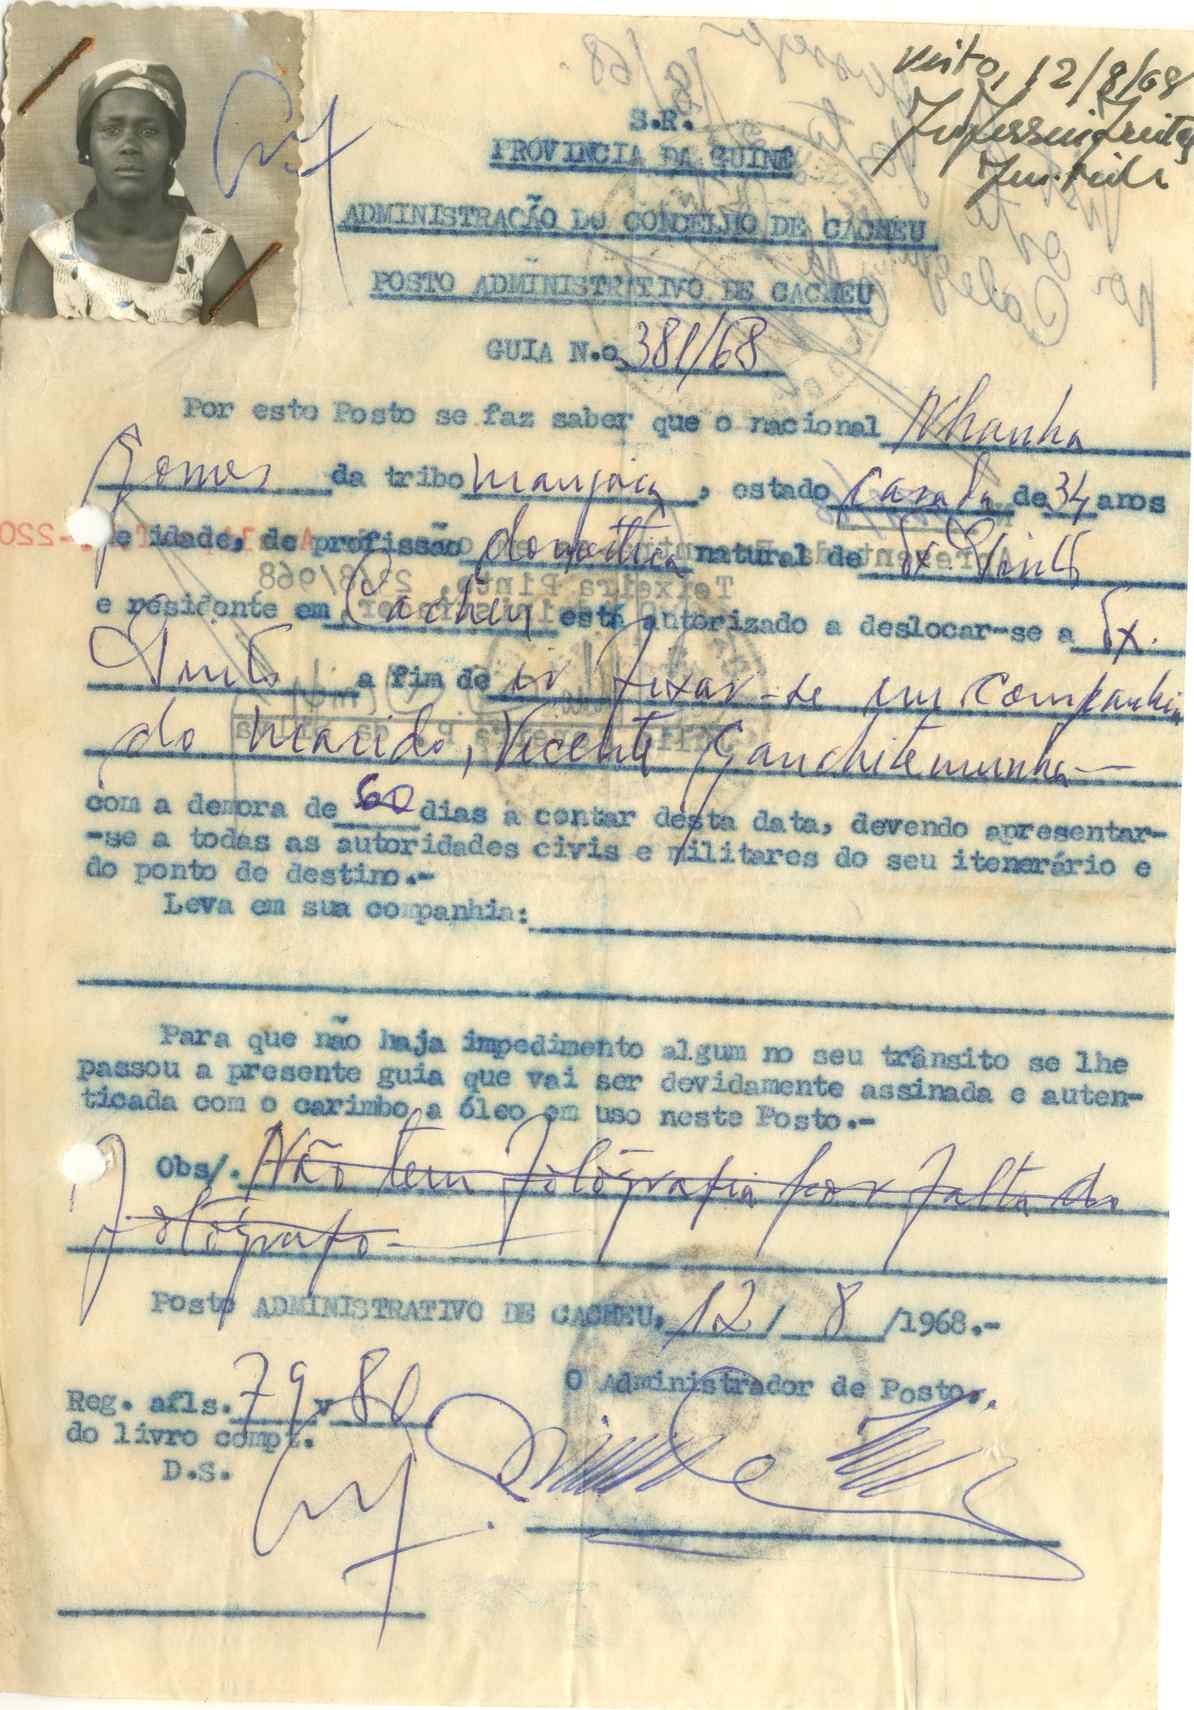 Visto, 12/8/68
S.R.
PROVINCIA DA GUINÉ
ADMINISTRAÇÃO DO CONCELHO DE CACHEU
POSTO ADMINISTRATIVO DE CACHEU
GUIA N.o 381/68
Por este Posto se faz saber que o nacional Nhanha
Gomes da tribo manjaca, estado casada de 34 anos
de idade, de profissão doméstica natural de Tx Pinto
e residente em Cacheu está autorizado a deslocar-se a Tx.
Pinto a fim de ir fixar-se em companhia
do marido, Vicente
com a demora de 60 dias a contar desta data, devendo apresentar-
-se a todas as autoridades civis e militares do seu itenerário e
do ponto de destino.-
Leva em sua companhia:
Para que não haja impedimento algum no seu trânsito se lhe
passou a presente guia que vai ser devidamente assinada e auten-
ticada com o carimbo a óleo em uso neste Posto.-
Obs/. Não tem fotógrafia por falta do
fotógrafo-
Posto ADMINISTRATIVO DE CACHEU, 12/ 8 /1968.-
O Administrador de Posto,
Reg. afls. 79 v 80
do livro compt.
D.S.